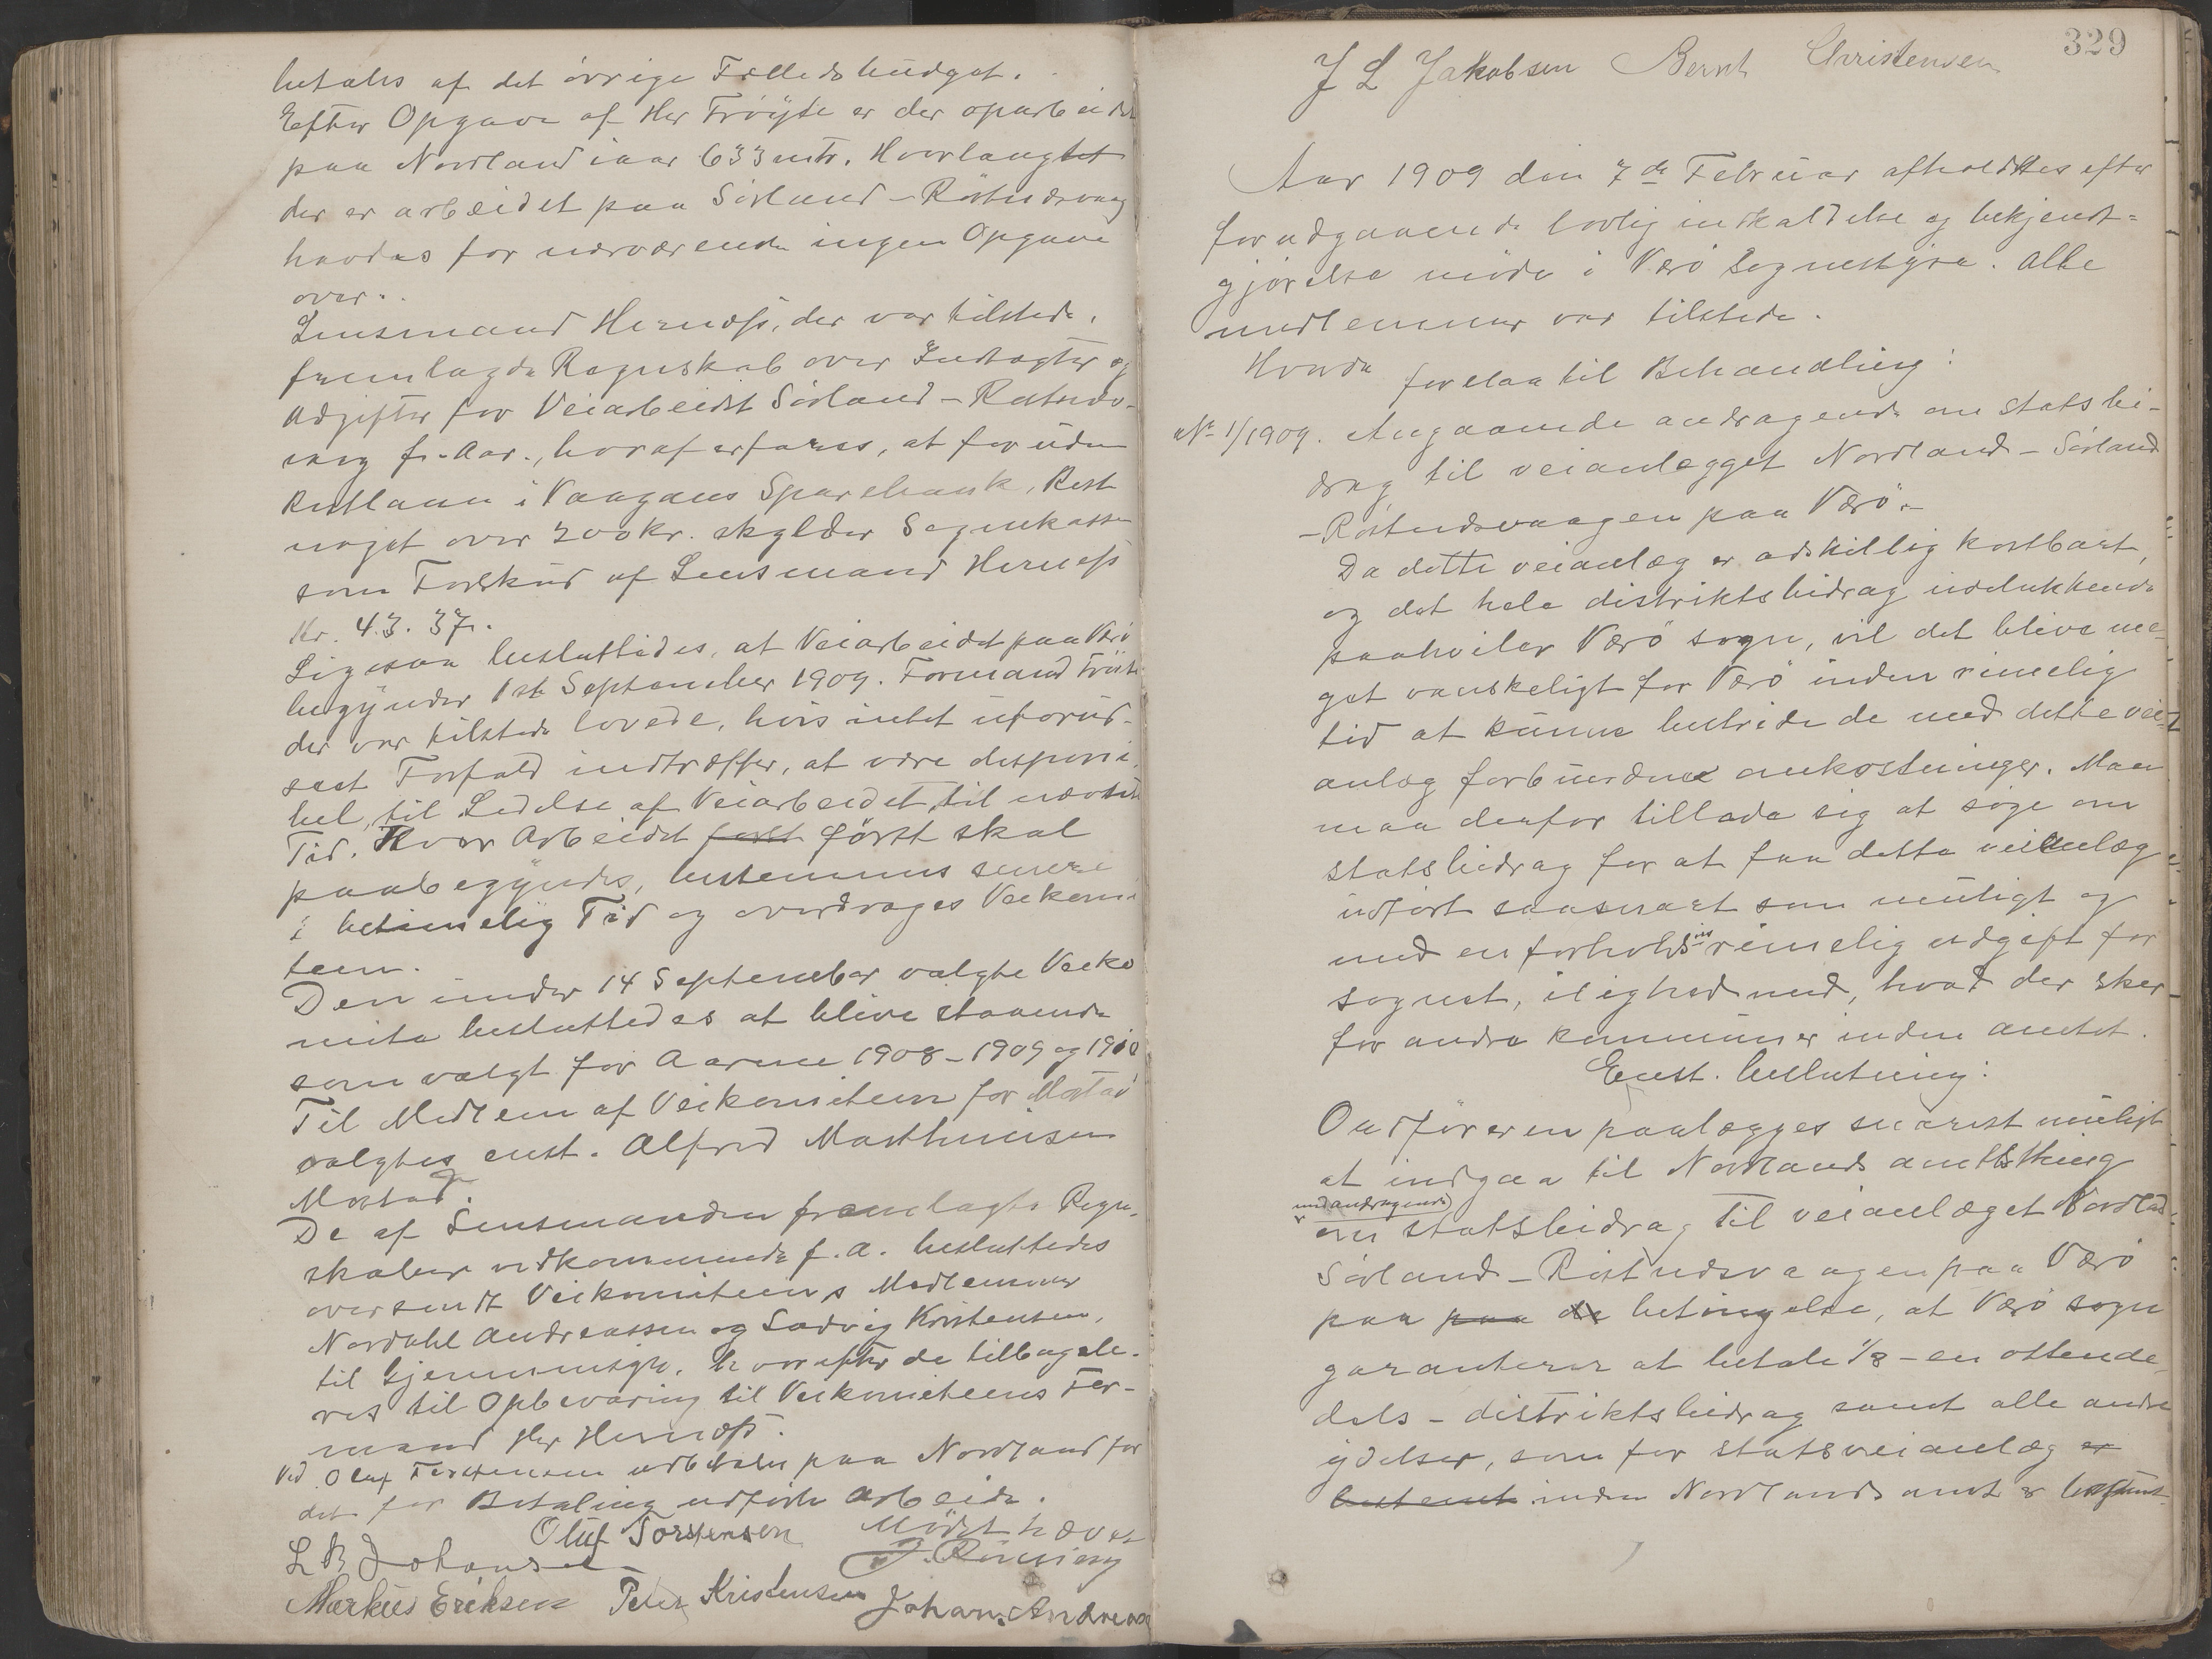 betales af det övrige Fælledsbudget.
Efter Opgave af Her Tröyte er der oparbeidet
paa Nordland iaar 633 mtr. Hvorlangt
der er arbeidet paa Sörland - Röstnæsvaag
havdes for nærværende ingen Opgave
over.
Lensmand Hernæss, der var tilstede,
fremlagde Regnskab over Indtægter og
Udgifter for Veiarbeidet Sörland - Røstnæs-
vaag f. Aar., hvoraf erfares, at foruden
Restlaan i Vaagans Sparebank, Rest
noget over 200 kr. skylder Sognekassen
som Forskud af Lensmand Herness
Kr. 43.37.
Ligesaa besluttedes, at Veiarbeidet paa Værö
begynder 1ste September 1909. Formand Tröite
der var tilstede lovede, hvis intet uforud-
seet Forfald indtræffer, at være desponi-
bel, til Ledelse af Veiarbeidet, til nævnte
Tid. Hvor Arbeidet först skal
paabegyndes, bestemmes senere
i betimelig Tid og overdrages Veikomi
teen.
Den under 14 September valgte Veiko
mite besluttedes at blive staaende
som valgt for Aarene 1908 - 1909 og 1910
Til Medlem af Veikomiteen for Mostad
valgtes enst. Alfred Mathinsen
Mostad.
De af Lensmanden fremlagte Regn-
skaber vedkommende f. A. besluttedes
oversendt Veikomiteens Medlemmer
Nordahl Andreassen og Ludvig Kristensen,
til Gjennemsyn, hvorefter de tilbagele-
res til Opbevaring til Veikomiteens For-
mand Her Hernæss.
Ved Oluf Torstensen udbetales paa Nordland for
det for Betaling udförte Arbeide.
Mödet hævet
Oluf Torstensen
L B Johansen J. Rönning
Markus Eriksen Peter Kristensen Johan Andreas
329
J L Jakobsen Bernt Christensen
Aar 1909 den 7de Februar afholdtes efter
forudgaaende lovlig indkaldelse og bekjendt=
gjörelse möde i Værö Sognestyre. Alle
medlemmer var tilstede.
Hvorda forelaa til Behandling:
No 1/1909. Angaaende andragende om statsbi-
drag til veianlægget Nordland - Sörland
- Röstnæsvaagen paa Værö. -
Da dette veianlæg er adskillig kostbart,
og det hele distriktsbidrag udelukkende
paahviler Værö sogn, vil det blive me-
get vanskeligt for Værö inden rimelig
tid at kunne bestride de med dette vei-
anlæg forbundne omkostninger. Man
maa derfor tillade sig at söge om
statsbidrag for at faa dette veianlæg
udfört saasnart som muligt og
med en forholdsvis rimelig udgift for
sognet, i lighed med, hvad der sker
for andre kommuner inden amtet.
Enst. beslutning:
Ordföreren paalægges snarest muligt
at indgaa til Nordlands amtsthing
med andragende
om statsbidrag til veianlæget Nordland
Sörland - Röstnæsvaagen paa Værö
paa paa de betingelse, at Værö sogn
garanterer at betale 1/8 - en ottende-
dels - distriktsbidrag samt alle andre
ydelser, som for statsveianlæg er
bestemt inden Nordlands amt er bestemt